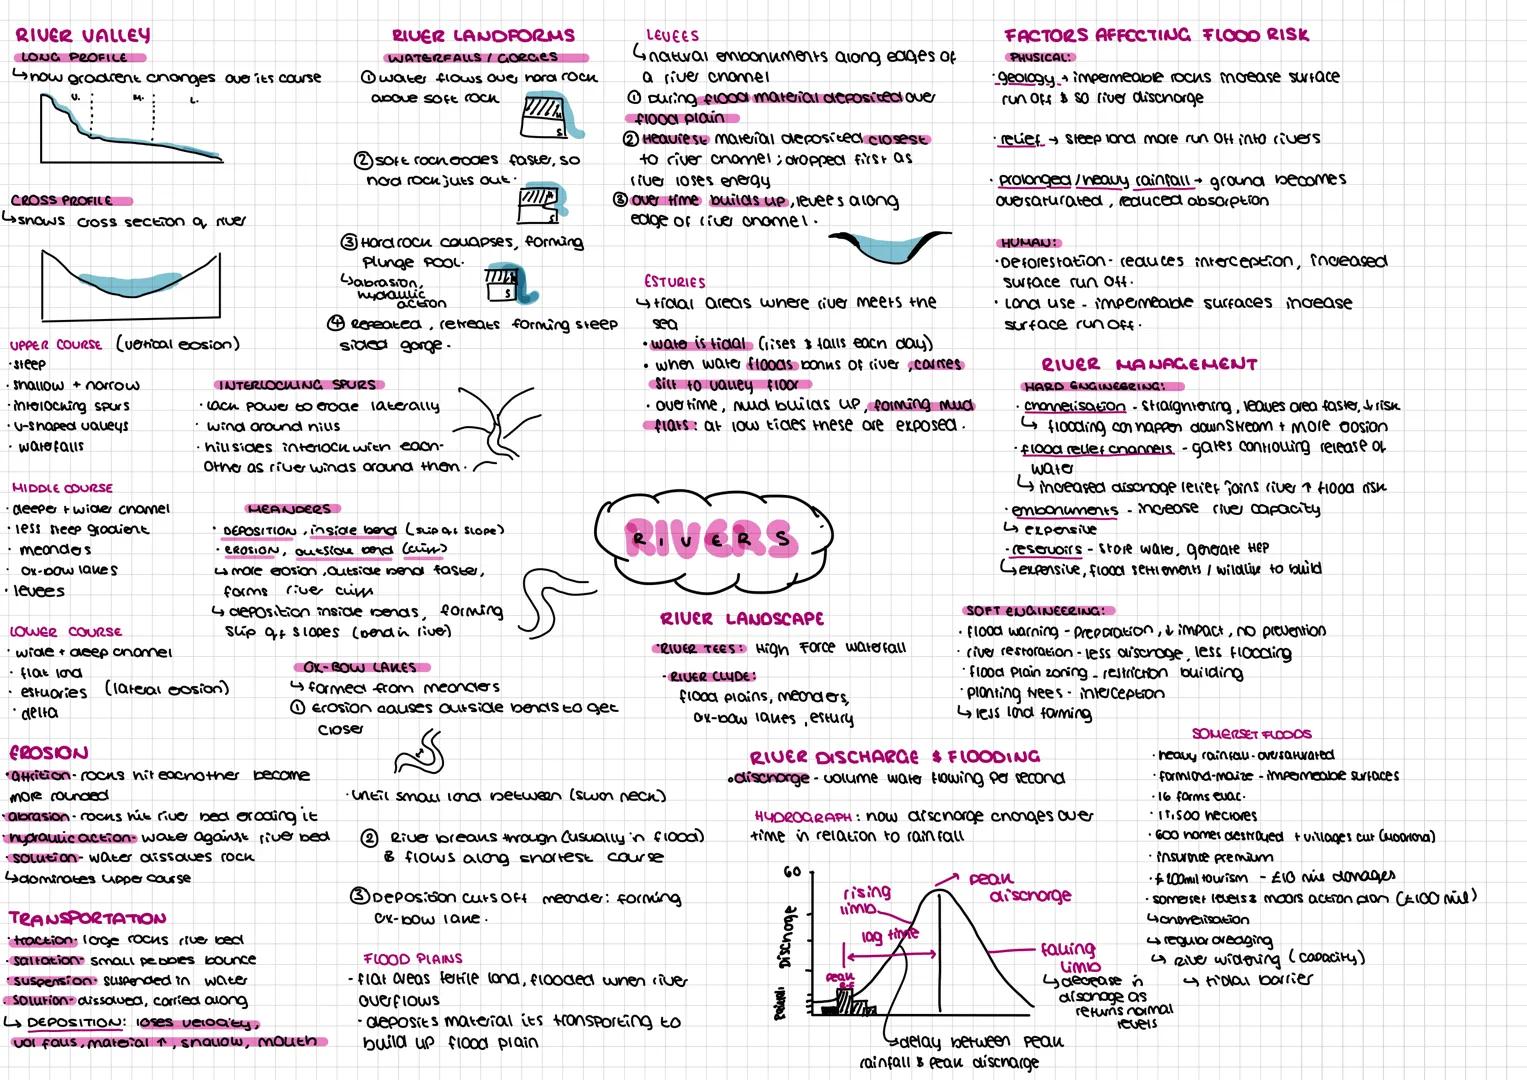 RIVER VALLEY
LONG PROFILE
↳how gradient changes over its course
U. M. L.
CROSS PROFILE
↳shows cross section of river
UPPER COURSE (vertical erosion)
·steep
·shallow + narrow
·interlocking spurs
·v-shaped valleys
·waterfalls
MIDDLE COURSE
·deeper + wider channel
·less steep gradient
·meanders
·ox-bow lakes
·levees
LOWER COURSE
·wide + deep channel
·flat land
·estuaries (lateral erosion)
·delta
EROSION
·attrition- rocks hit eachother become
more rounded
·abrasion- rocks hit river bed eroding it
·hydraulic action- water against river bed
·solution- water dissolves rock
↳dominates upper course
TRANSPORTATION
·traction- large rocks river bed
·saltation- small pebbles bounce
·suspension- suspended in water
·solution- dissolved, carried along
↳ DEPOSITION: loses velocity,
vol falls, material ↑, shallow, mouth
RIVER LANDFORMS
WATERFALLS / GORGES
① water flows over hard rock
above soft rock
H
S
② soft rock erodes faster, so
hard rock juts out.
H
S
③ Hard rock collapses, forming
plunge pool.
↳abrasion,
hydraulic
action
H
S
④ Repeated, retreats forming steep
sided gorge.
INTERLOCKING SPURS
·lack power to erode laterally
·wind around hills
·hillsides interlock with each-
other as river winds around them.
MEANDERS
·DEPOSITION, inside bend (slip off slope)
·EROSION, outside bend (cliff)
↳more erosion, outside bend faster,
forms river cliff
↳deposition inside bends, forming
slip off slopes (bend in river)
OX-BOW LAKES
↳formed from meanders
① Erosion causes outside bends to get
closer
·until small land between (swan neck)
② River breaks through (usually in flood)
& flows along shortest course
③ Deposition cuts off meander: forming
ox-bow lake.
FLOOD PLAINS
-flat areas fertile land, flooded when river
overflows
-deposits material its transporting to
build up flood plain
LEVEES
↳natural embankments along edges of
a river channel
① During flood material deposited over
flood plain
② Heaviest material deposited closest
to river channel; dropped first as
river loses energy
③ over time builds up, levees along
edge of river channel.
ESTURIES
↳tidal areas where river meets the
sea
·water is tidal (rises & falls each day)
·when water floods banks of river, carries
silt to valley floor
·overtime, mud builds up, forming mud
flats: at low tides these are exposed.
RIVERS
RIVERS
RIVER LANDSCAPE
·RIVER TEES: High Force waterfall
·RIVER CLYDE:
flood plains, meanders,
ox-bow lakes, estury
RIVER DISCHARGE & FLOODING
·discharge - volume water flowing per second
HYDROGRAPH: how discharge changes over
time in relation to rainfall
60
Discharge
rainfall
rising
limb
lag time
peak
r.f.
peak
discharge
falling
limb
↳decrease in
discharge as
returns normal
levels
delay between peak
rainfall & peak discharge
FACTORS AFFECTING FLOOD RISK
PHYSICAL:
·geology → impermeable rocks increase surface
run off & so river discharge
·relief → steep land more run off into rivers
·prolonged/heavy rainfall → ground becomes
oversaturated, reduced absorption
HUMAN:
·Deforestation- reduces interception, increased
surface run off.
·Land use - impermeable surfaces increase
surface run off.
RIVER MANAGEMENT
HARD ENGINEERING:
·channelisation - straightening, leaves area faster, ↓risk
↳ flooding can happen downstream + more erosion
·flood relief channels - gates controlling release of
water
↳increased discharge relief joins river ↑ flood risk
·embankments - increase river capacity
↳expensive
·reservoirs - store water, generate HEP
↳expensive, flood settlements / wildlife to build
SOFT ENGINEERING:
·flood warning - preparation, ↓ impact, no prevention
·river restoration - less discharge, less flooding
·flood plain zoning - restriction building
·planting trees - interception
↳less land farming
SOMERSET FLOODS
·heavy rainfall- oversaturated
·farmland-maize - impermeable surfaces
·16 farms evac.
·11,500 hectares
·600 homes destroyed + villages cut (Moorland)
·insurance premium
·£200mil tourism - £10 mil damages
·somerset levels & moors action plan (£100 mil)
↳channelisation
↳regular dredging
↳river widening (capacity)
↳tidal barrier